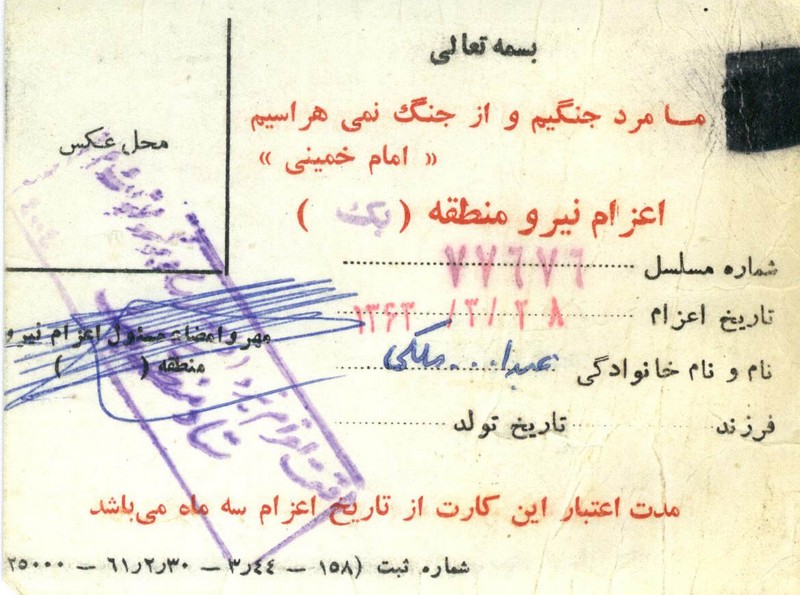 بسمه تعالی
ما مرد جنگیم و از جنگ نمی هراسیم
« امام خمینی »
محل عکس
اعزام نیرو منطقه ( یک )
شماره مسلسل ۷۷٦۷٦
تاریخ اعزام ۱۳٦۳/۳/۲۸
مهر و امضاء مسئول اعزام نیرو
منطقه ( )
نام و نام خانوادگی عبدا... ملکی
فرزند تاریخ تولد
مدت اعتبار این کارت از تاریخ اعزام سه ماه می‌باشد
شماره ثبت (۱۵۸ — ٤٤ر۳ — ۳۰ر۲ر٦۱ — ۲۵۰۰۰